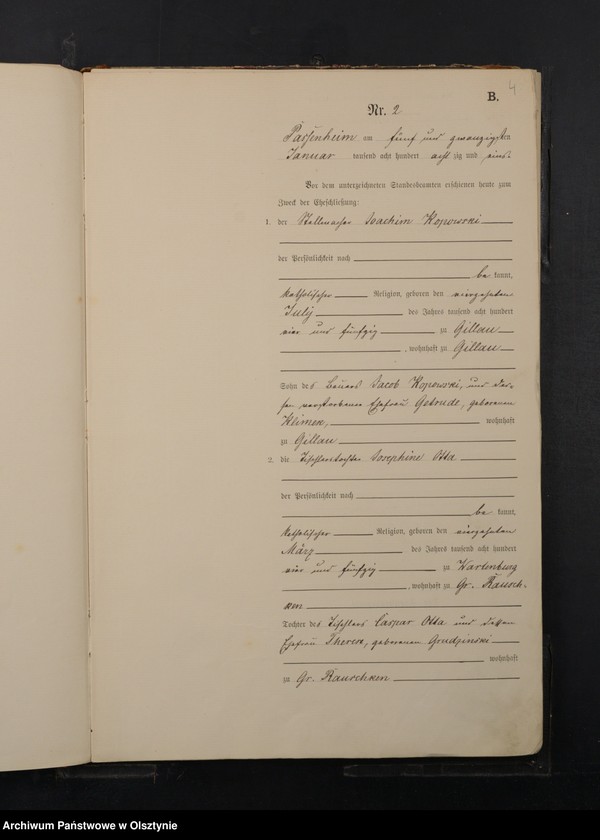 4
B.
Nr. 2
Passenheim am fünf und zwanzigsten
Januar tausend acht hundert acht zig und eins.
Vor dem unterzeichneten Standesbeamten erschienen heute zum
Zweck der Eheschließung:
1. der Stellmacher Joachim Kopowski
der Persönlichkeit nach
be kannt,
katholischer Religion, geboren den vierzehnten
July des Jahres tausend acht hundert
vier und fünfzig zu Gillau
, wohnhaft zu Gillau
Sohn des Bauers Jacob Kopowski, und des-
sen verstorbenen Ehefrau Getrude, geborenen
Klimek, wohnhaft
zu Gillau
2. die Tischlertochter Josephine Otta
der Persönlichkeit nach
be kannt,
katholischer Religion, geboren den vierzehnten
März des Jahres tausend acht hundert
vier und fünfzig zu Wartenburg
, wohnhaft zu Gr. Rausch-
ken
Tochter des Tischlers Caspar Otta und dessen
Ehefrau Therese, geborenen Grudzinski
wohnhaft
zu Gr. Rauschken
Archiwum Państwowe w Olsztynie